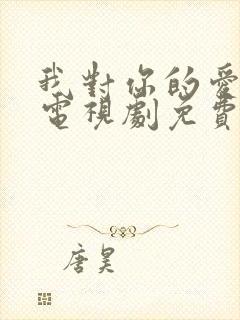 我對你的愛
電視劇免費
唐昊